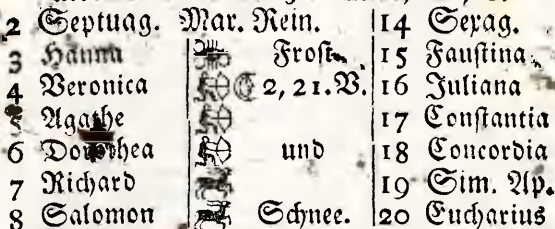 2 Septuag. Mar. Rein. 14 Sexag.
3 Hanna Frost. 15 Faustina.
4 Veronica 2, 21. V. 16 Juliana
5 Agathe 17 Constantia
6 Dorothea und 18 Concordia
7 Richard 19 Sim. Ap.
8 Salomon Schnee. 20 Eucharius